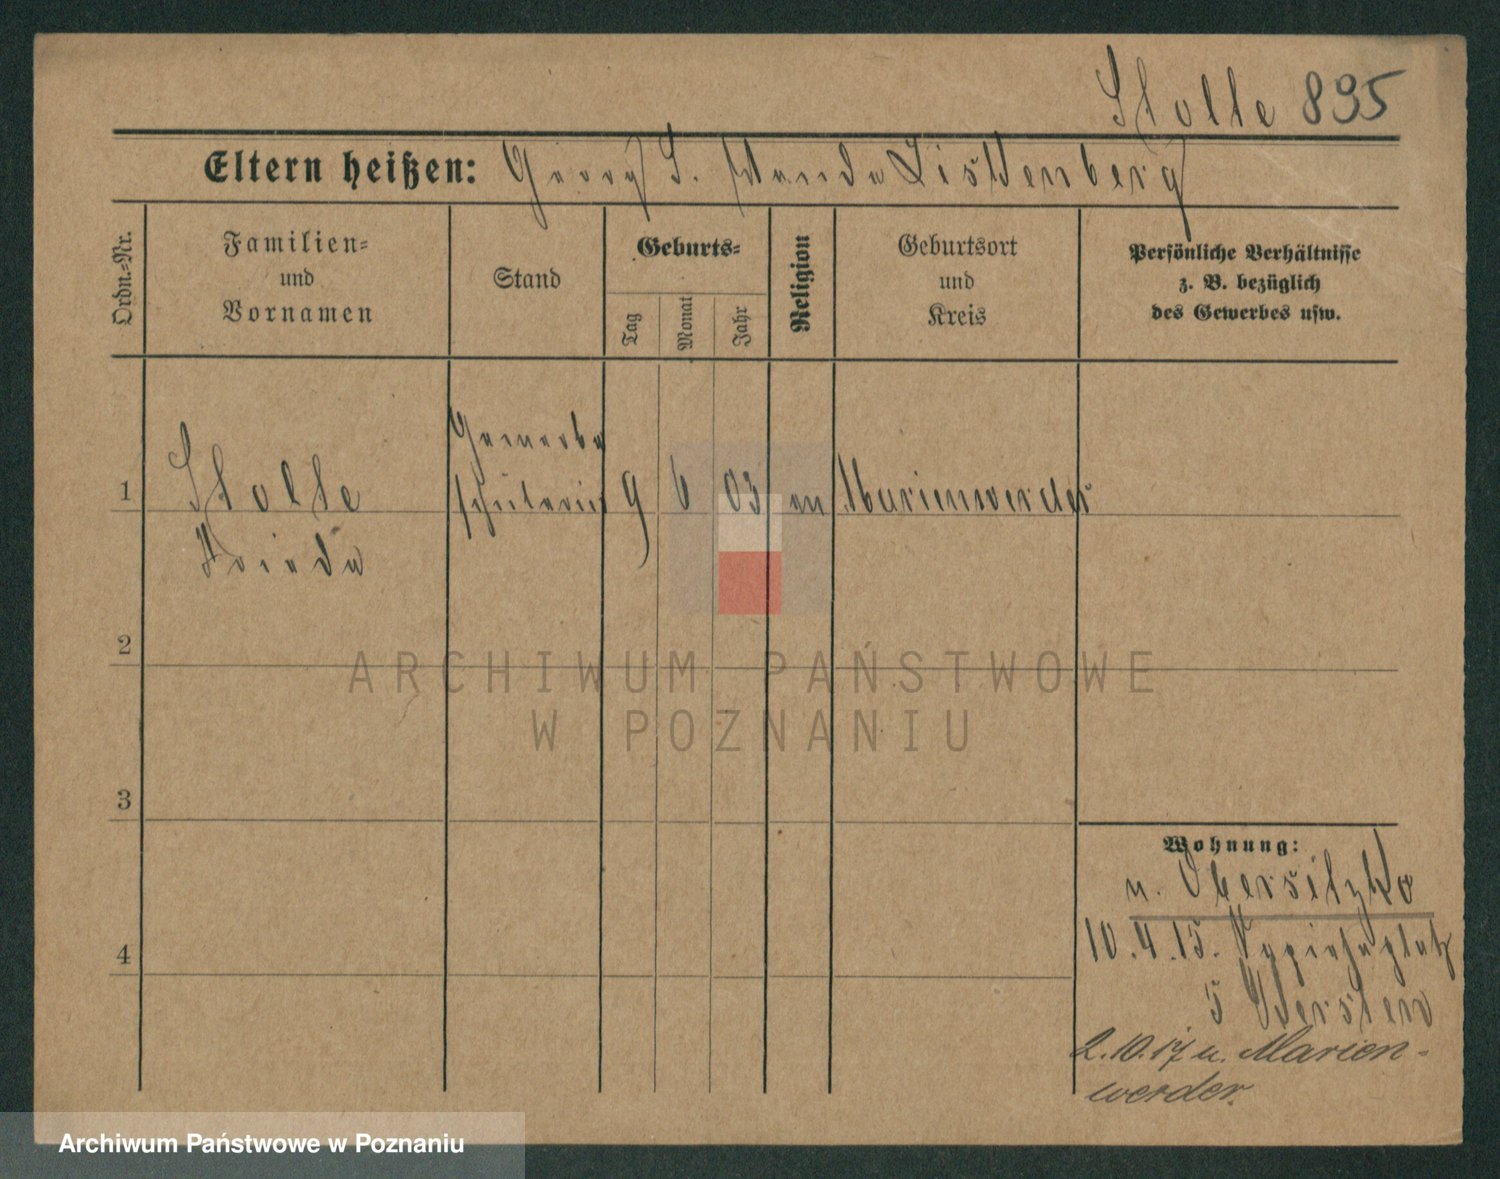 Stolle 895
Eltern heißen: Georg S. Wanda Listenberg
Ordn.-Nr.
Familien-
und
Vornamen
Stand
Geburts-
Tag
Monat
Jahr
Religion
Geburtsort
und
Kreis
Persönliche Verhältnisse
z. B. bezüglich
des Gewerbes usw.
1 Stolle
Frieda
Gewerbe
schülerin
9 6 03 ev Marienwerder
2
3
4
Wohnung:
n. Obersitzko
10.4.15.
5
2.10.17 n. Marien-
werder.
ARCHIWUM PAŃSTWOWE
W POZNANIU
Archiwum Państwowe w Poznaniu